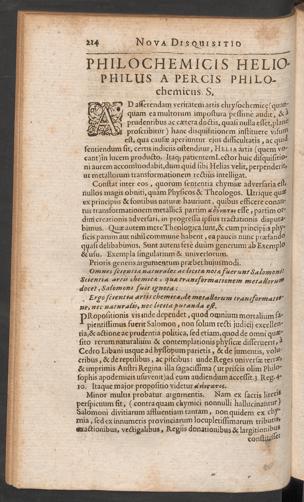 214 NOVA DISQUISITIO
PHILOCHEMICIS HELIO-
PHILUS A PERCIS PHILO-
chemicus S.
AD asserendam veritatem artis chrysochemicę (quan-
quam ea multorum impostura pessimè audit, & à
prudentibus ac cætera doctis, quasi nulla esset, planè
proscribitur) hanc disquisitionem instituere visum
est, quâ causæ aperiuntur ejus difficultatis, ac quid
sentiendum sit, certis indiciis ostenditur, HELIA artis (quem vo-
cant) in lucem producto. Itaq; patientem Lector huic disquisitio-
ni aurem accommodabit, dum quid sibi Helias velit, perpenderit,
ut metallorum transformationem rectiùs intelligat.
Constat inter eos, quorum sententia chymiæ adversatur, eâ
nullos magis obniti, quam Physicos & Theologos. Utrique quæ
ex principiis & fontibus naturæ hauriunt, quibus efficere conan-
tur transformationem metallicā partim ἀδύνατον esse, partim or-
dini creationis adversari, in progressu ipsius tractationis disputa-
bimus. Quæ autem mere Theologica sunt, & cum principiis phy-
sicis parum aut nihil commune habent, ea paucis nunc præfandò
quasi delibabimus. Sunt autem ferè duûm generum ab Exemplo
& usu. Exempla singularium & universorum.
Prioris generis argumentum præbet huiusmodi.
Omnis scientia naturalis ac licita nota fuerunt Salomoni:
Scientia artis chemicæ, qua transformationem metallorum
docet, Salomoni fuit ignota:
Ergo scientia artis chemicæ, de metallorum transformatio-
ne, nec naturalis, nec licita putanda est.
PRopositionis vis inde dependet, quod omnium mortalium sa-
pientissimus fuerit Salomon, non solum recti judicii excellen-
tia, & actione ac prudentia politica, sed etiam, quod de omni quæ-
sito rerum naturalium & contemplationis physicæ disseruerit, à
Cedro Libani usque ad hyssopum parietis, & de jumentis, volu-
cribus, & de reptilibus, ac piscibus: unde Reges universæ terræ,
& imprimis Austri Regina illa sagacissima (ut priscis olim Philo-
sophis apodemian usurvenit) ad eum audiendum accessit. 3. Reg. 4.
10. Itaque major propositio videtur ἀδύνατος.
Minor multis probatur argumentis. Nam ex sacris literis
perspicuum sit, (contra quàm chymici nonnulli hallucinantur)
Salomoni divitiarum affluentiam tantam, non quidem ex chy-
mia, sed ex innumeris provinciarum locupletissimarum tributis,
exactionibus, vectigalibus, Regiis donationibus & largitionibus
constitisse: